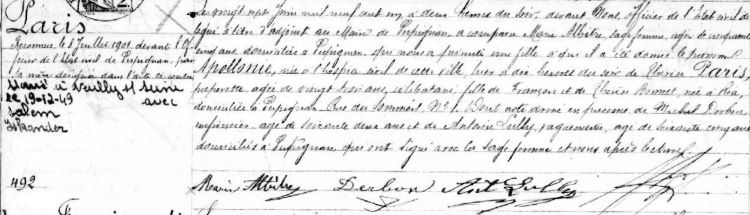 Paris
Reconnue le 8 Juillet 1901 devant l'Of
ficier de l'état civil de Perpignan, par
sa mère désignée dans l'acte ci contre
Marié à Neuilly s/ Seine
le 19-12-49
avec
Salem
Iskander
492
Le vingt sept Juin mil neuf cent un, à deux heures du soir, devant Nous, officier de l'état civil
adjoint au Maire de Perpignan, a comparu Marie Albitre, sage femme, agée de cinquante
cinq ans domiciliée à Perpignan, qui nous a présenté une fille à qui il a été donné le prénom
Apollonie, née à l'hospice civil de cette ville, hier à dix heures du soir de Paris,
agée de vingt trois ans, célibataire, fille de François et de Bonnet, née à
domiciliée à Perpignan Rue du Sommeil, N° 4. Dont acte donné en présence de Michel Derbon
agé de soixante deux ans et de Antoine Lully, agé de cinq ans
domiciliés à Perpignan, qui ont signé avec la sage femme et nous après lecture
Marie Albitre Derbon Ant Lully